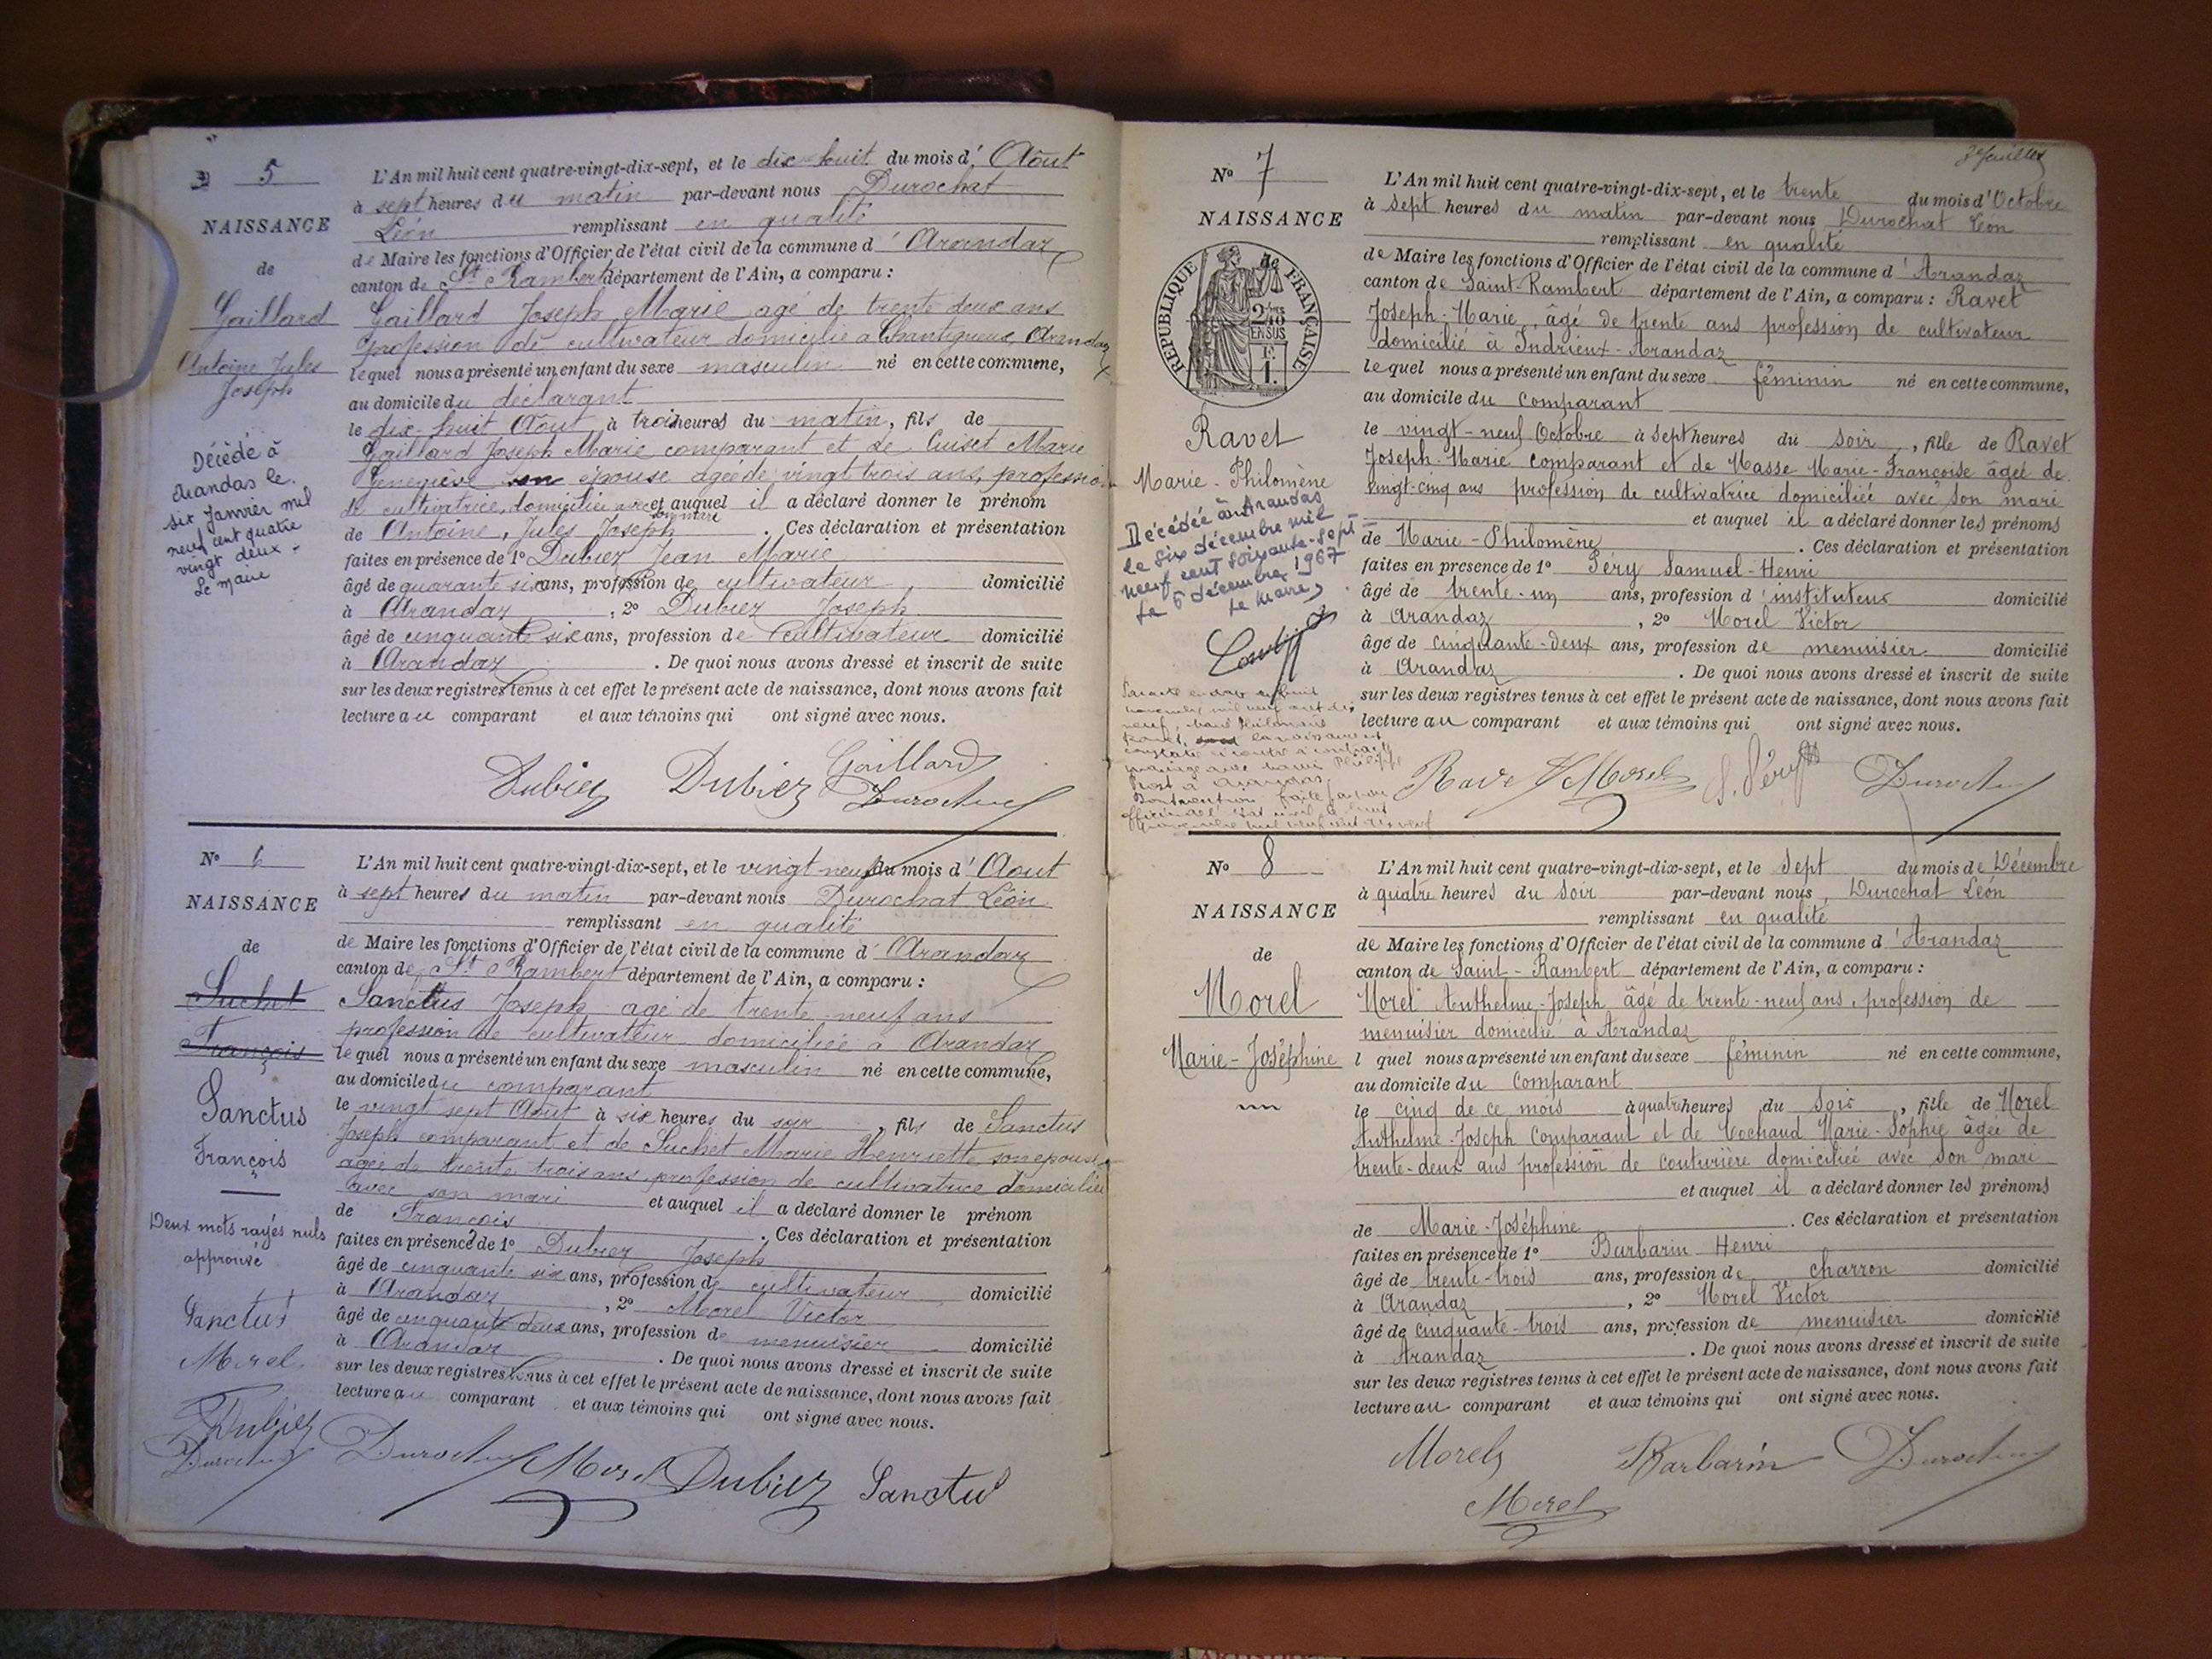 5
NAISSANCE
de
Gaillard
Antoine Jules
Joseph
Décédé à
Arandas le
six Janvier mil
neuf cent quatre
vingt deux -
Le Maire
L'An mil huit cent quatre-vingt-dix-sept, et le dix huit du mois d' Août
à sept heures du matin par-devant nous Durochat
Léon remplissant en qualité
de Maire les fonctions d'Officier de l'état civil de la commune d' Arandaz
canton de St Rambert département de l'Ain, a comparu :
Gaillard Joseph Marie agé de trente deux ans
profession de cultivateur domicilié a Arandaz
lequel nous a présenté un enfant du sexe masculin né en cette commune,
au domicile du déclarant
le dix-huit Août à trois heures du matin, fils de
Gaillard Joseph Marie comparant et de Cuiset Marie
Geneviève son épouse agée de vingt trois ans, profession
de cultivatrice, domiciliée avec son mari et auquel il a déclaré donner le prénom
de Antoine, Jules Joseph . Ces déclaration et présentation
faites en présence de 1° Dubiez Jean Marie
âgé de quarante six ans, profession de cultivateur domicilié
à Arandaz , 2° Dubiez Joseph
âgé de cinquante six ans, profession de Cultivateur domicilié
à Arandaz . De quoi nous avons dressé et inscrit de suite
sur les deux registres tenus à cet effet le présent acte de naissance, dont nous avons fait
lecture au comparant et aux témoins qui ont signé avec nous.
Dubiez Dubiez Gaillard
Durochat
N° 6
NAISSANCE
de
Suchet
François
Sanctus
François
Deux mots rayés nuls
approuvé
Sanctus
Morel
Dubiez
Durochat
L'An mil huit cent quatre-vingt-dix-sept, et le vingt-neuf du mois d' Aout
à sept heures du matin par-devant nous Durochat Léon
remplissant en qualité
de Maire les fonctions d'Officier de l'état civil de la commune d' Arandaz
canton de St Rambert département de l'Ain, a comparu :
Sanctus Joseph agé de trente-neuf ans
profession de cultivateur domiciliée à Arandaz
lequel nous a présenté un enfant du sexe masculin né en cette commune,
au domicile du comparant
le vingt sept Août à six heures du soir , fils de Sanctus
Joseph comparant et de Suchet Marie Henriette son épouse
agée de trente trois ans, profession de cultivatrice domiciliée
avec son mari et auquel il a déclaré donner le prénom
de François . Ces déclaration et présentation
faites en présence de 1° Dubiez Joseph
âgé de cinquante six ans, profession de cultivateur domicilié
à Arandaz , 2° Morel Victor
âgé de cinquante deux ans, profession de menuisier domicilié
à Arandaz . De quoi nous avons dressé et inscrit de suite
sur les deux registres tenus à cet effet le présent acte de naissance, dont nous avons fait
lecture au comparant et aux témoins qui ont signé avec nous.
Durochat Morel Dubiez Sanctus
3e feuillet
N° 7
NAISSANCE
de
RÉPUBLIQUE FRANÇAISE
2/10 EN SUS
1F.
Ravet
Marie-Philomène
Décédée à Arandas
le six décembre mil
neuf cent soixante-sept
Le 6 décembre 1967
Le Maire,
L'An mil huit cent quatre-vingt-dix-sept, et le trente du mois d'Octobre
à sept heures du matin par-devant nous Durochat Léon
remplissant en qualité
de Maire les fonctions d'Officier de l'état civil de la commune d' Arandaz
canton de Saint-Rambert département de l'Ain, a comparu : Ravet
Joseph-Marie, âgé de trente ans profession de cultivateur
domicilié à Indrieux-Arandaz
lequel nous a présenté un enfant du sexe féminin né en cette commune,
au domicile du comparant
le vingt-neuf Octobre à sept heures du soir , fille de Ravet
Joseph-Marie comparant et de Masse Marie-Françoise âgée de
vingt-cinq ans profession de cultivatrice domiciliée avec son mari
et auquel il a déclaré donner les prénoms
de Marie-Philomène . Ces déclaration et présentation
faites en présence de 1° Péry Samuel-Henri
âgé de trente-un ans, profession d'instituteur domicilié
à Arandaz , 2° Morel Victor
âgé de cinquante-deux ans, profession de menuisier domicilié
à Arandaz . De quoi nous avons dressé et inscrit de suite
sur les deux registres tenus à cet effet le présent acte de naissance, dont nous avons fait
lecture au comparant et aux témoins qui ont signé avec nous.
Ravet Morel S. Péry Durochat
N° 8
NAISSANCE
de
Morel
Marie-Joséphine
L'An mil huit cent quatre-vingt-dix-sept, et le sept du mois de Décembre
à quatre heures du soir par-devant nous, Durochat Léon
remplissant en qualité
de Maire les fonctions d'Officier de l'état civil de la commune d'Arandaz
canton de Saint-Rambert département de l'Ain, a comparu :
Morel Anthelme-Joseph âgé de trente-neuf ans, profession de
menuisier domicilié à Arandaz
l quel nous a présenté un enfant du sexe féminin né en cette commune,
au domicile du comparant
le cinq de ce mois à quatre heures du soir , fille de Morel
Anthelme-Joseph comparant et de Cochaud Marie-Sophie âgée de
trente-deux ans profession de couturière domiciliée avec son mari
et auquel il a déclaré donner les prénoms
de Marie-Joséphine . Ces déclaration et présentation
faites en présence de 1° Barbarin Henri
âgé de trente-trois ans, profession de charron domicilié
à Arandaz , 2° Morel Victor
âgé de cinquante-trois ans, profession de menuisier domicilié
à Arandaz . De quoi nous avons dressé et inscrit de suite
sur les deux registres tenus à cet effet le présent acte de naissance, dont nous avons fait
lecture au comparant et aux témoins qui ont signé avec nous.
Morel Barbarin Durochat
Morel